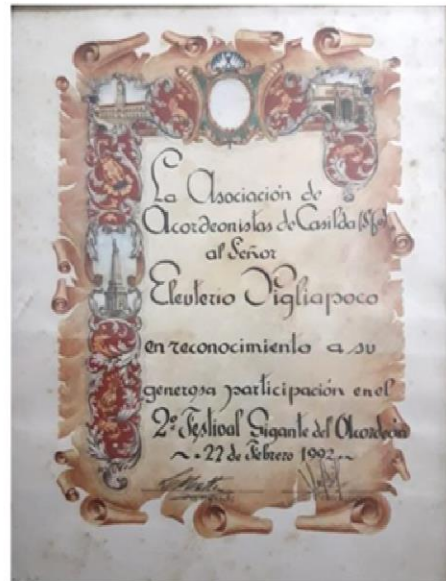 La Asociación de
Acordeonistas de Casilda (S.fe)
al Señor
Eleuterio Vigliapoco
en reconocimiento a su
generosa participación en el
2º Festival Gigante del Acordeón
~ 22 de Febrero 1992 ~